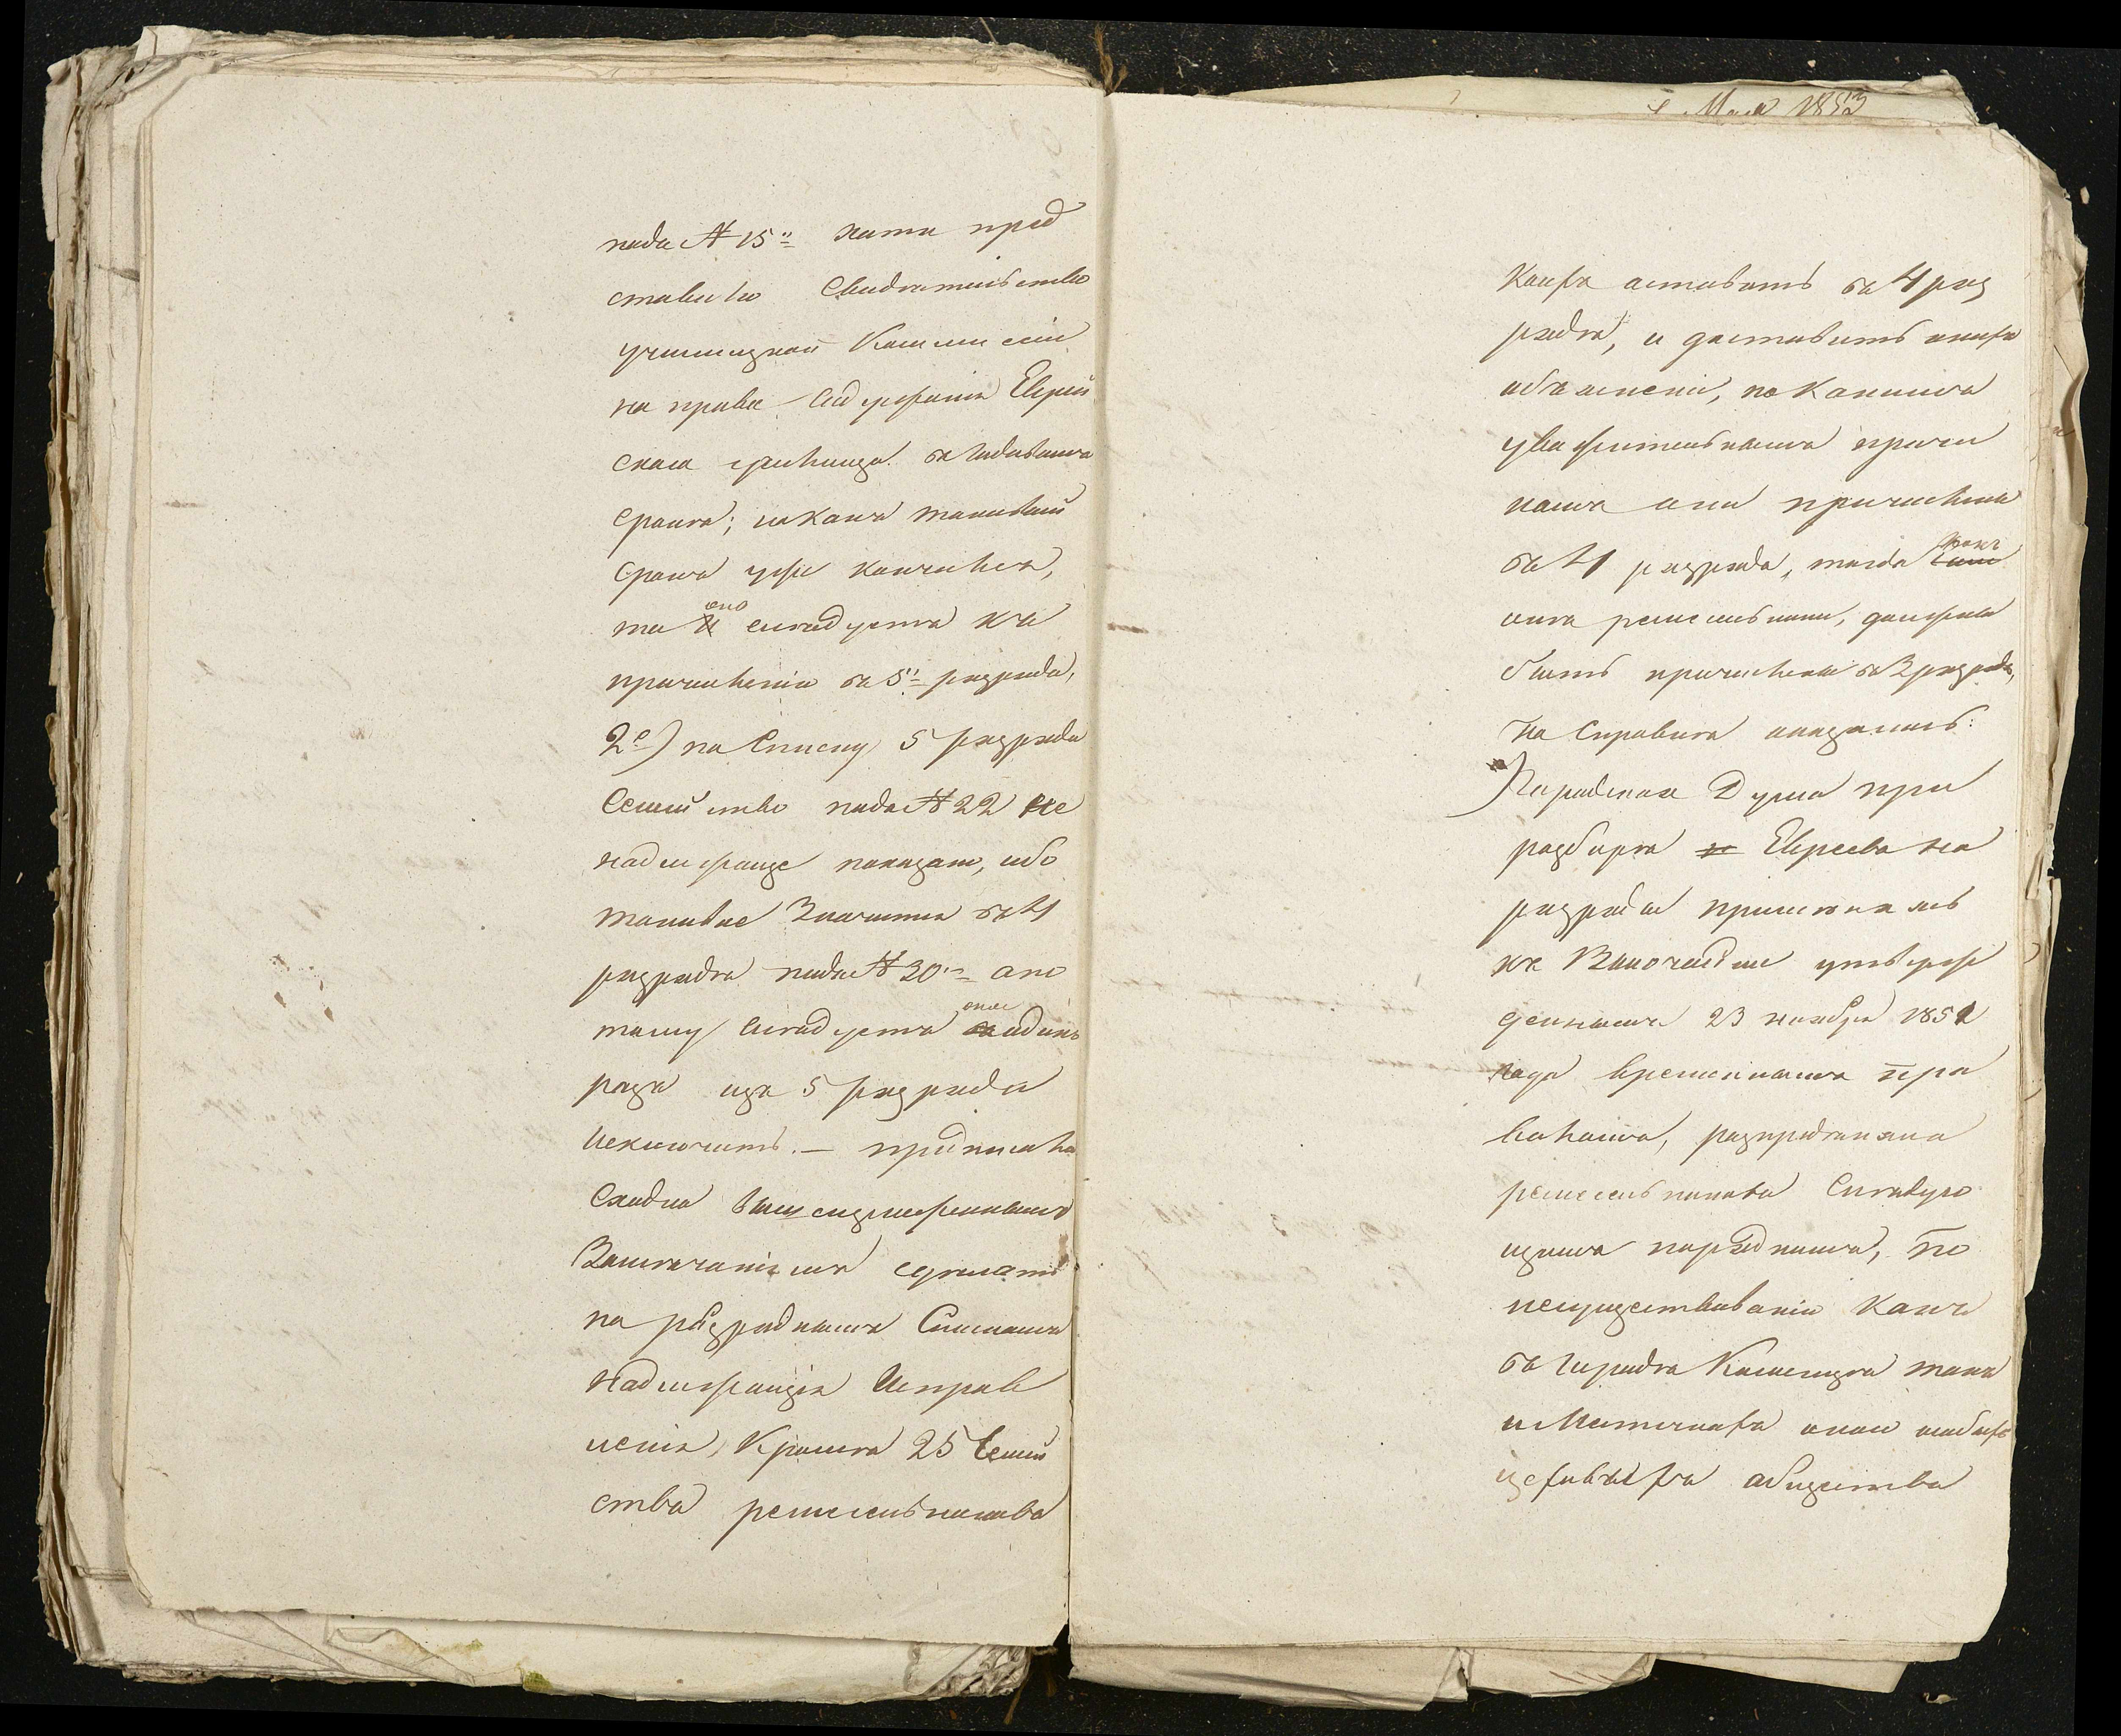 подъ № 15й хотя пред
ставило Свидѣтельство
училищной Коммиссіи
на право содержанія Еврей
скаго училища въ годовомъ
срокѣ; но какъ таковый
срокъ уже кончился,
то оно слѣдуетъ къ
причисленію въ 5й разрядъ,
2е) по Списку 5 разряда
Семейство подъ № 22 не
надлежаще показано, ибо
таковое Значится въ 4
разрядѣ подъ № 30м а по
тому слѣдуетъ оное
разъ изъ 5 разряда
Исключить. — предписала
Сходно вышеизложеннымъ
Замѣчаніямъ сдѣлать
по разряднымъ Спискамъ
надлежащія Исправ
ленія, Кромѣ 25 Семей
ства ремесленниковъ
4 Мая 1853
Коихъ оставить въ 4 раз
рядѣ, и доставить онихъ
объясненіе, по Какимъ
уважительнымъ причи
намъ они причислены
въ 4 разрядъ, тогда какъ
они ремесленники, должны
быть причислены въ 3 разрядъ,
По Справкѣ оказалось:
Городская Дума при
разборѣ Евреевъ на
разряды примѣняясь
къ Высочайше утверж
деннымъ 23 ноября 1851
года временнымъ пра
виламъ, распредѣляла
ремесленниковъ Слѣдую
щимъ порядкомъ, по
несуществованію Какъ
въ городѣ Каменцѣ такъ
и Мѣстечкахъ
обществъ